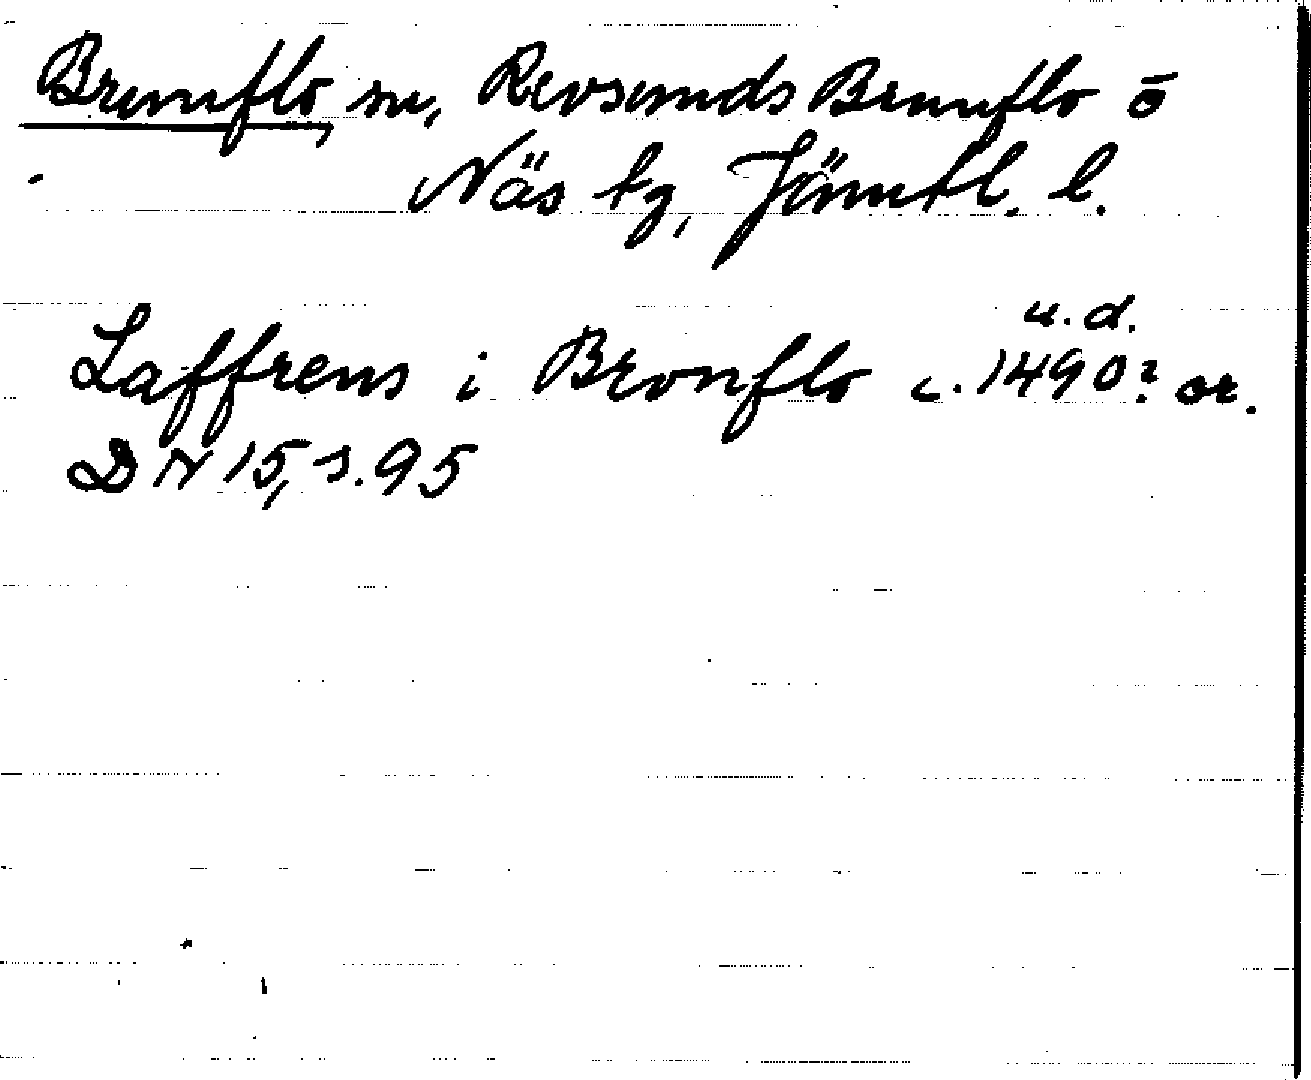 Brunflo sn, Revsunds Brunflo o
Näs tg, Jämtl. l.
u.d.
Laffrens i Bronflo c. 1490? or.
DN 15, s. 95